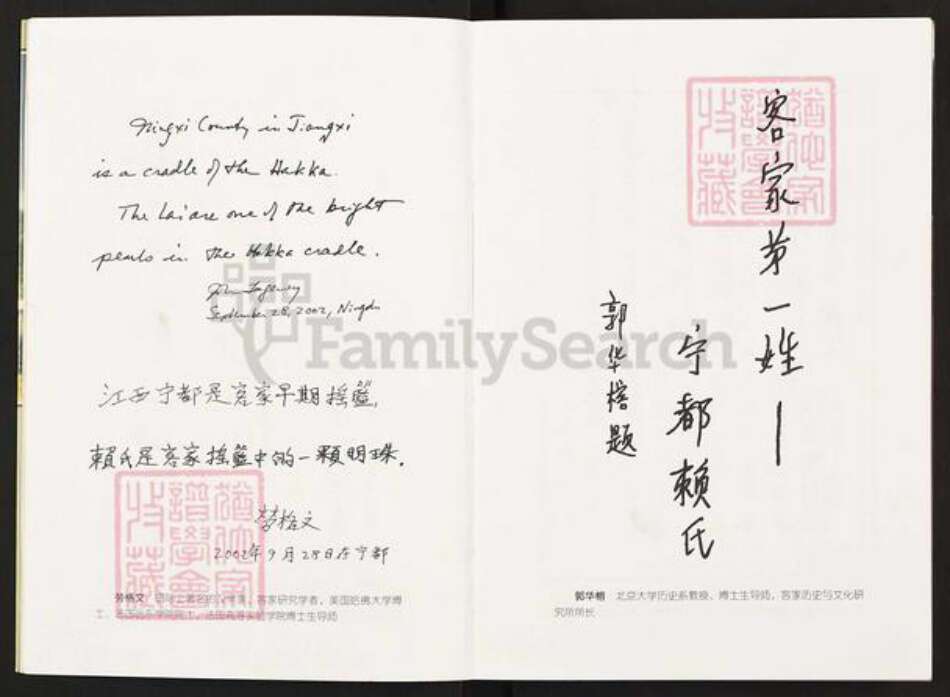 Ningxi County in Jiangxi
is a cradle of the Hakka.
The Lai are one of the bright
pearls in the Hakka cradle.
John Lagerwey
September 28, 2002, Ningdu
江西宁都是客家早期摇篮,
賴氏是客家摇篮中的一颗明珠.
劳格文
2002年9月28日在宁都
劳格文
客家研究学者、美国哈佛大学博
学院博士生导师
客家第一姓—
宁都赖氏
郭华榕题
郭华榕 北京大学历史系教授、博士生导师，客家历史与文化研
究所所长
猶他家
譜學會
收藏
猶他家
譜學會
收藏
FamilySearch